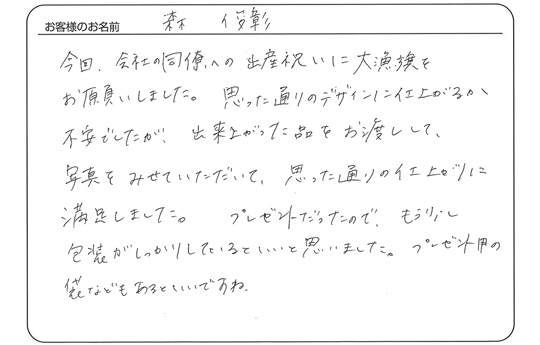 お客様のお名前 森 俊彰
今回、会社の同僚への出産祝いに大漁旗を
お願いしました。 思った通りのデザインに仕上がるか
不安でしたが、出来上がった品をお渡しして、
写真をみせていただいて、思った通りの仕上がりに
満足しました。 プレゼントだったので、もう少し
包装がしっかりしているといいと思いました。プレゼント用の
袋などもあるといいですね。